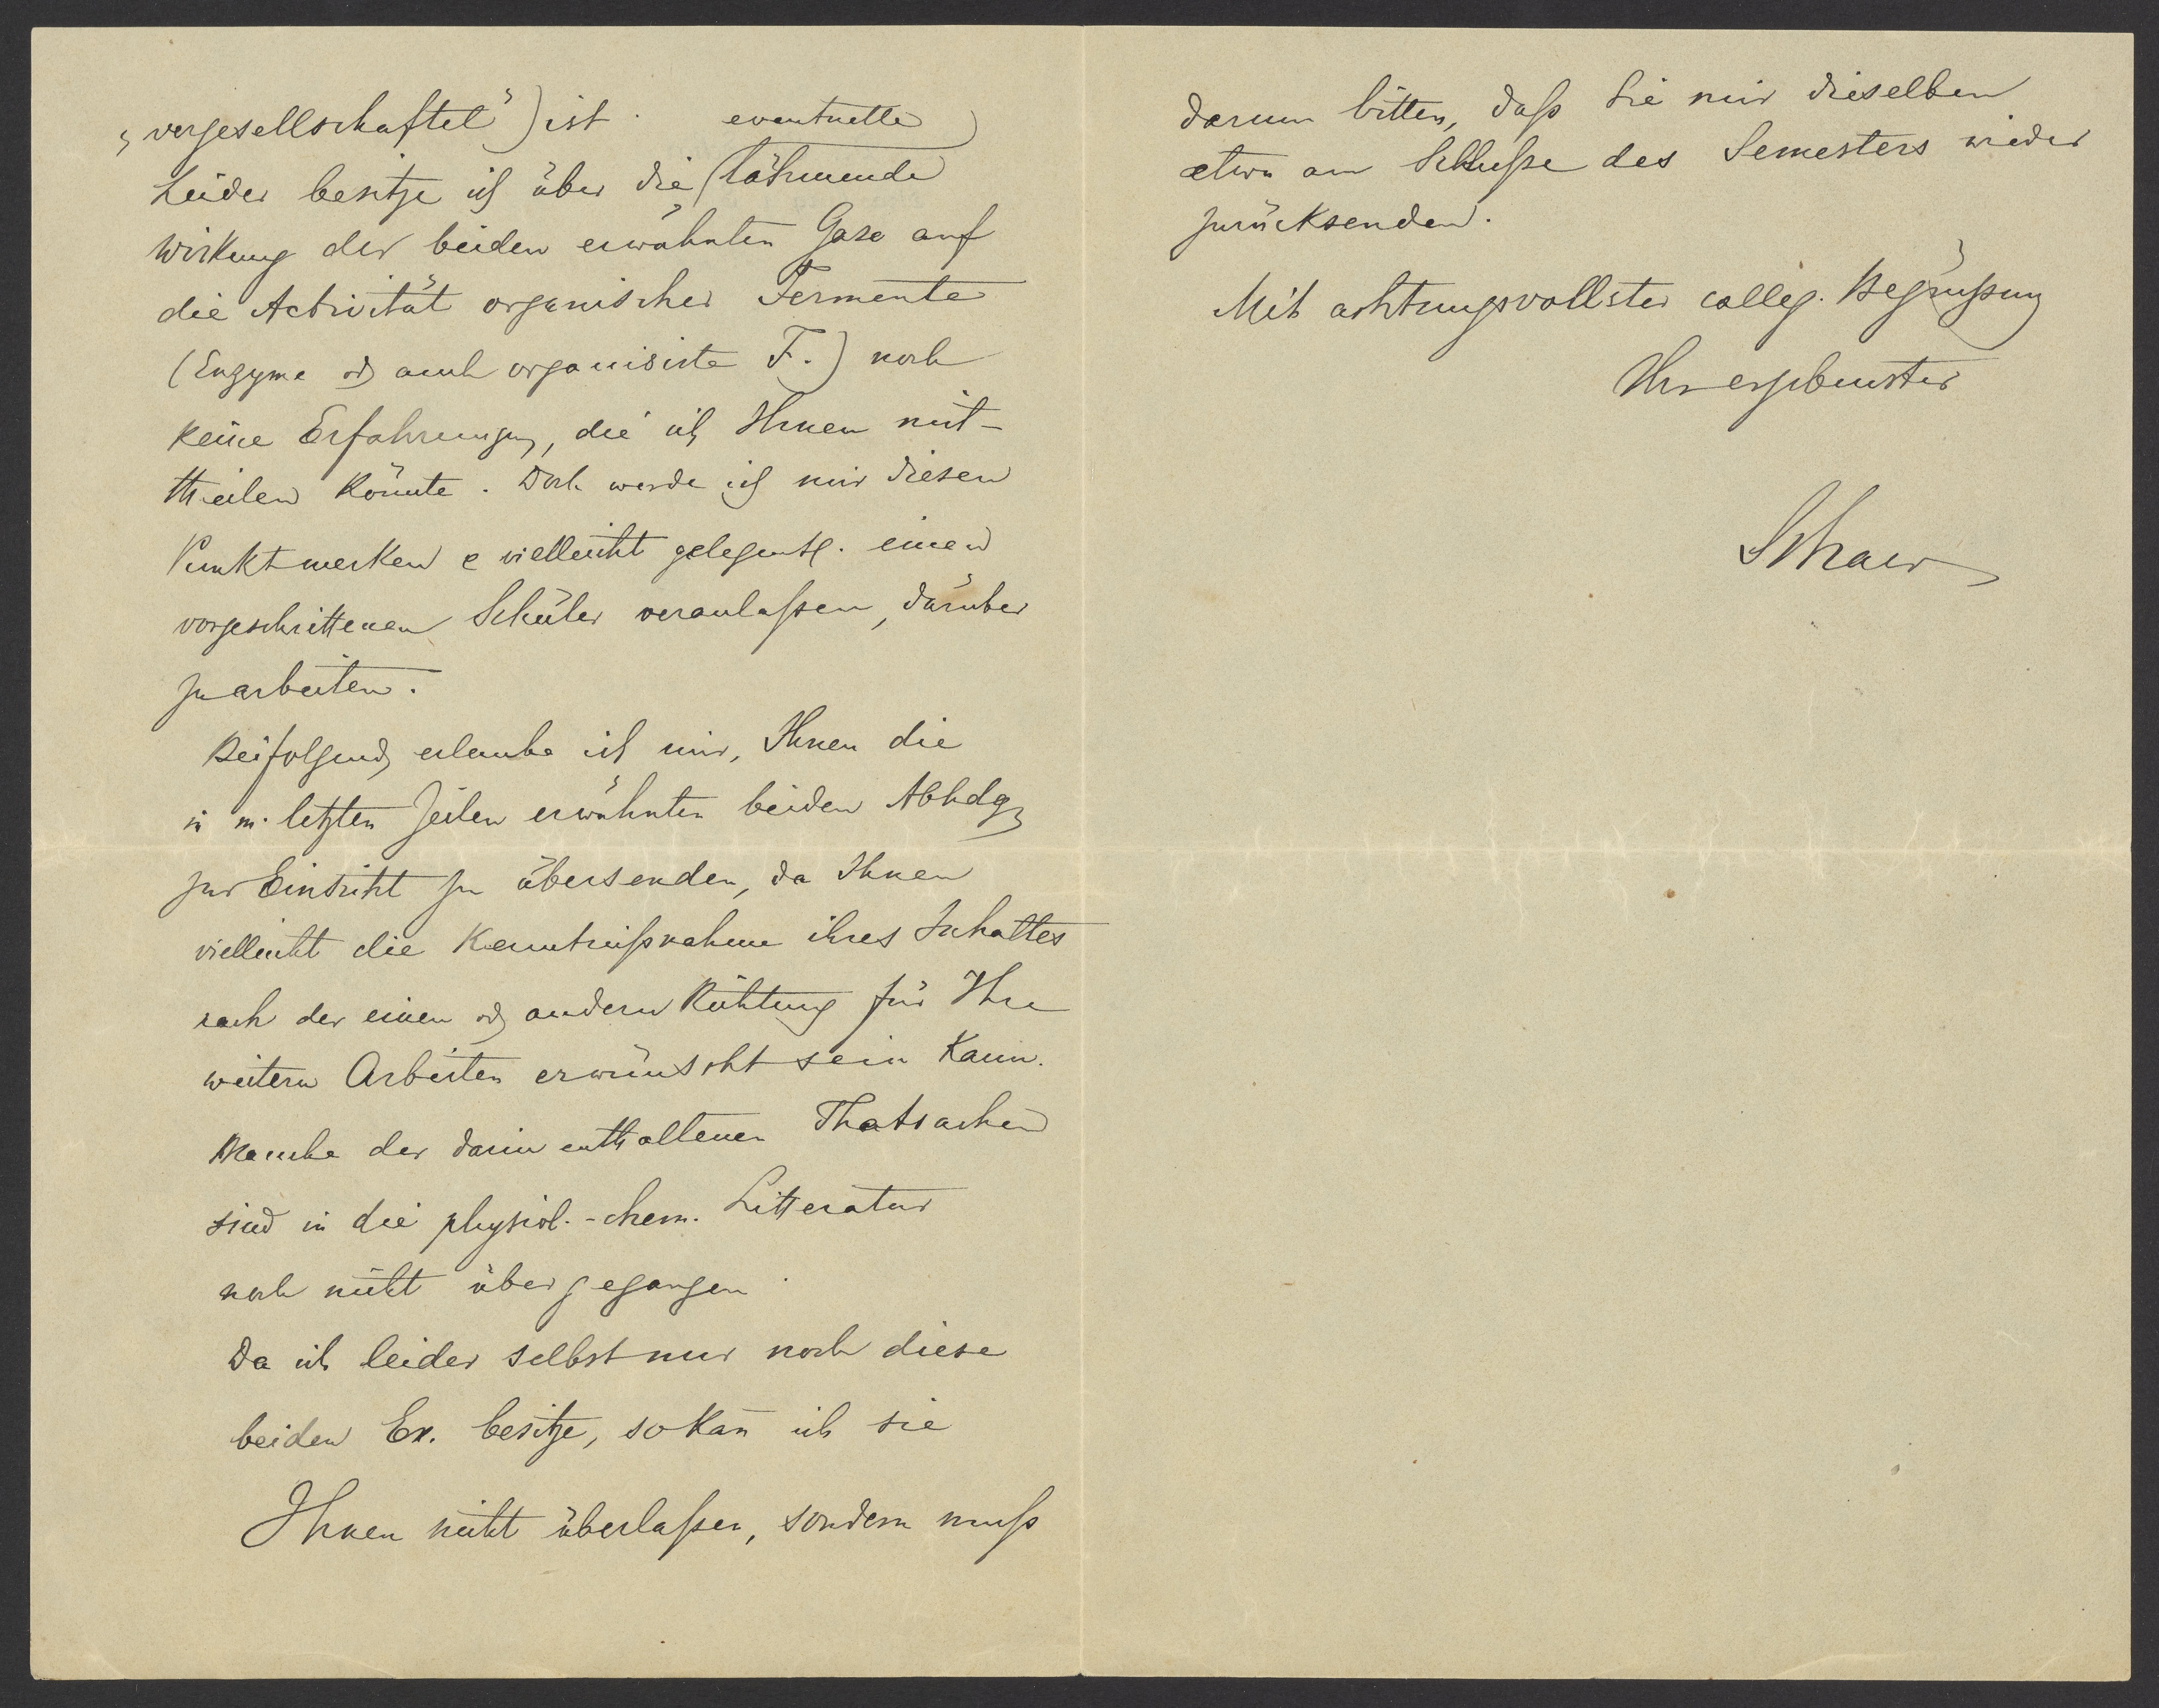 „vergesellschaftet“) ist.
eventuelle
Leider besitze ich über die lähmende
Wirkung der beiden erwähnten Gase auf
die Activität organischer Fermente
(Enzyme od auch organisirte F.) noch
keine Erfahrungen, die ich Ihnen mit-
theilen könnte. Doch werde ich mir diesen
Punkt merken & vielleicht gelegentl. einen
vorgeschrittenen Schüler veranlaßen, darüber
zu arbeiten.
Beifolgend erlaube ich mir, Ihnen die
in m. letzten Zeilen erwähnten beiden Abhdgn
zur Einsicht zu übersenden, da Ihnen
vielleicht die Kenntnißnahme ihres Inhaltes
nach der einen od andern Richtung für Ihre
weitern Arbeiten erwünscht sein kann.
Manche der darin enthaltenen Thatsachen
sind in die physiol.-chem. Litteratur
noch nicht übergegangen.
Da ich leider selbst nur noch diese
beiden Ex. besitze, so kan̄ ich sie
Ihnen nicht überlaßen, sondern muß
darum bitten, daß Sie mir dieselben
etwa am Schluße des Semesters wieder
zurücksenden.
Mit achtungsvollster colleg. Begrüßung
Ihr ergebenster
Schaer